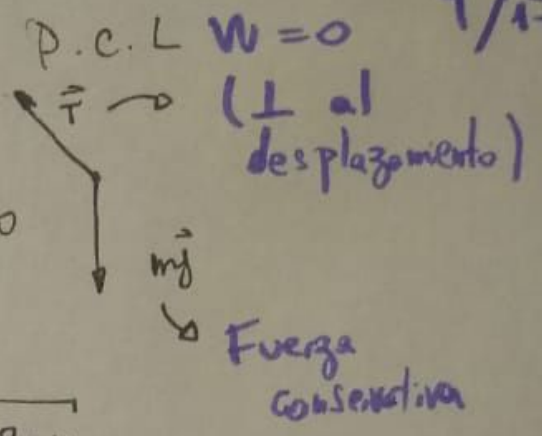 D.C.L W = 0
T⃗ → (⊥ al
desplazamiento)
mg⃗
Fuerza
conservativa